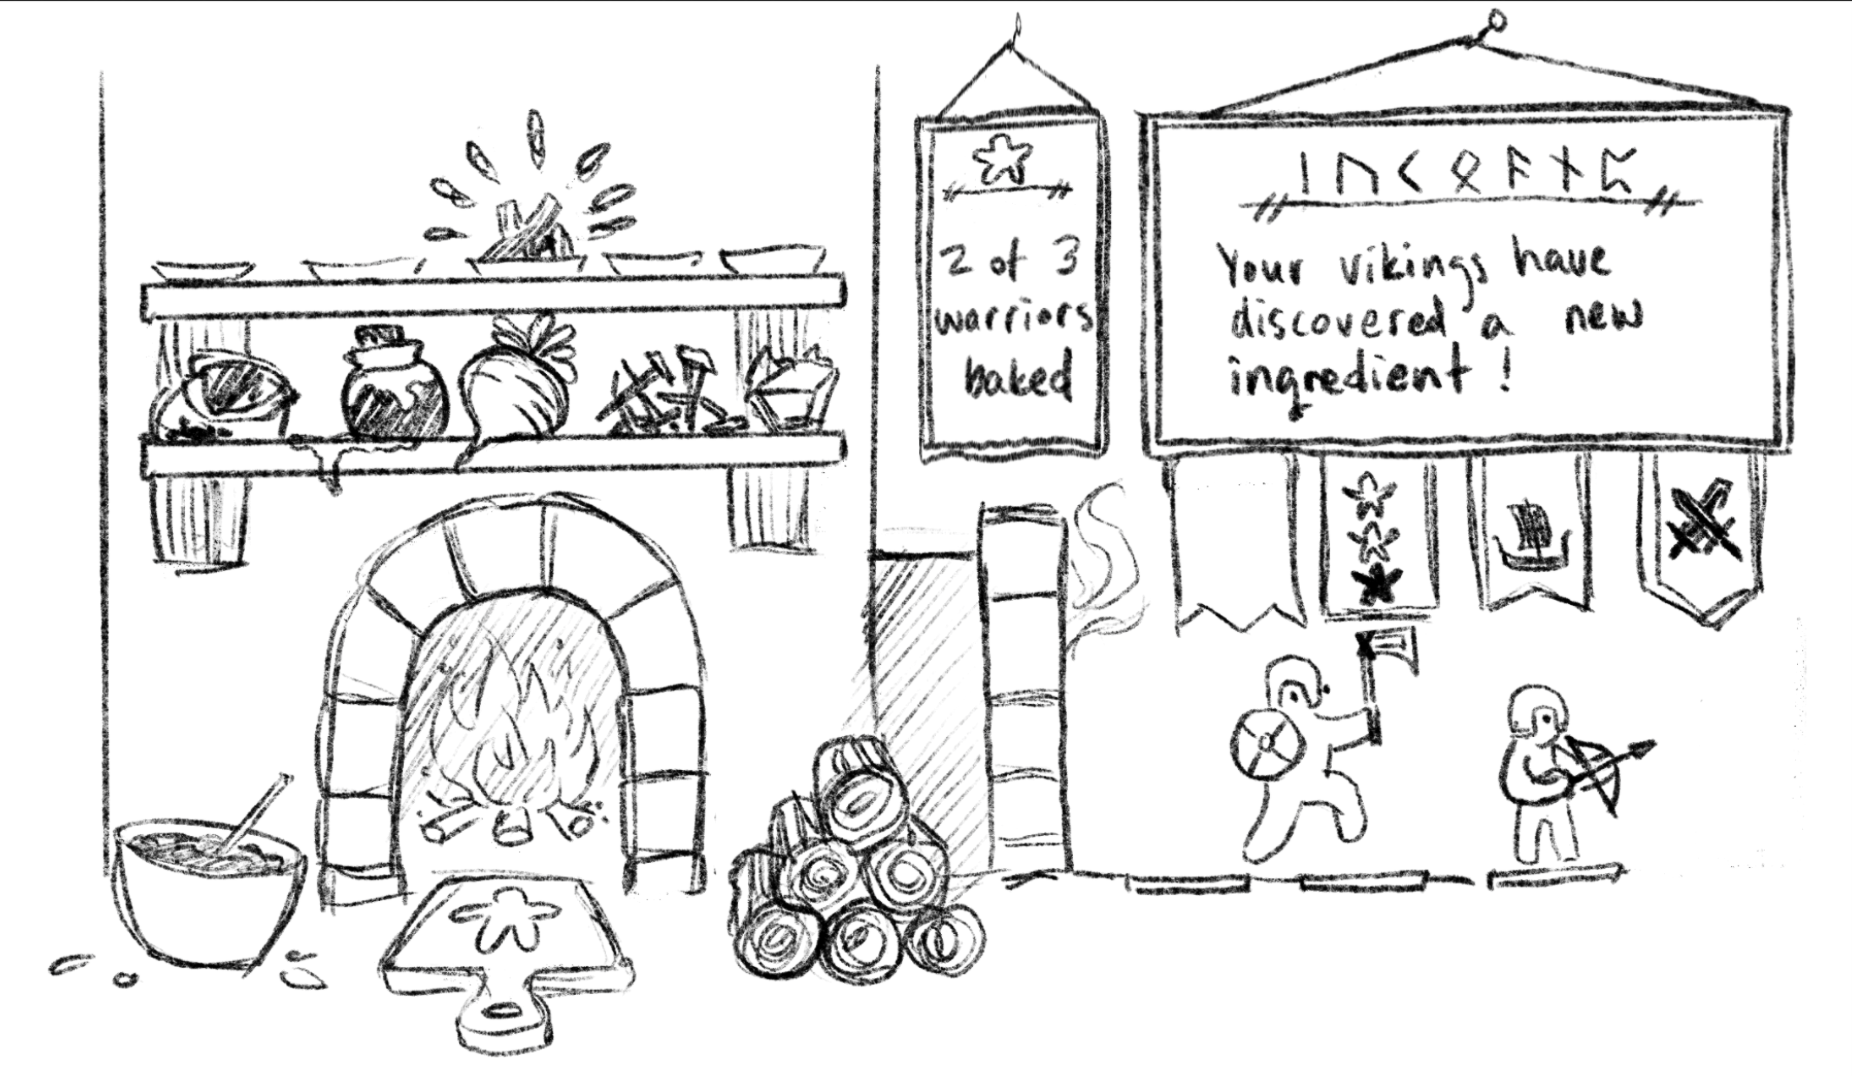 2 of 3
warriors
baked
ᛁᚢᚲᛟᚨᚾᛈ
Your vikings have
discovered a new
ingredient!